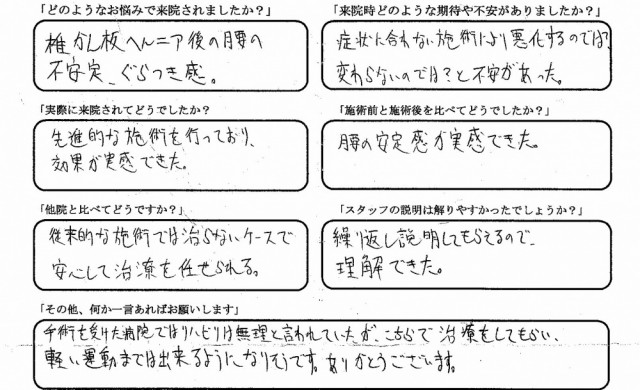 「どのようなお悩みで来院されましたか？」
椎かん板ヘルニア後の腰の
不安定、ぐらつき感。
「来院時どのような期待や不安がありましたか？」
症状に合わない施術により悪化するのでは?
変わらないのでは?と不安があった。
「実際に来院されてどうでしたか？
先進的な施術を行っており、
効果が実感できた。
「施術前と施術後を比べてどうでしたか？」
腰の安定感が実感できた。
「他院と比べてどうですか？」
従来的な施術では治らないケースで
安心して治療を任せられる。
「スタッフの説明は解りやすかったでしょうか？」
繰り返し説明してもらえるので、
理解できた。
「その他、何か一言あればお願いします」
手術を受けた病院ではリハビリは無理と言われていたが、こちらで治療をしてもらい、
軽い運動までは出来るようになりそうです。ありがとうございます。